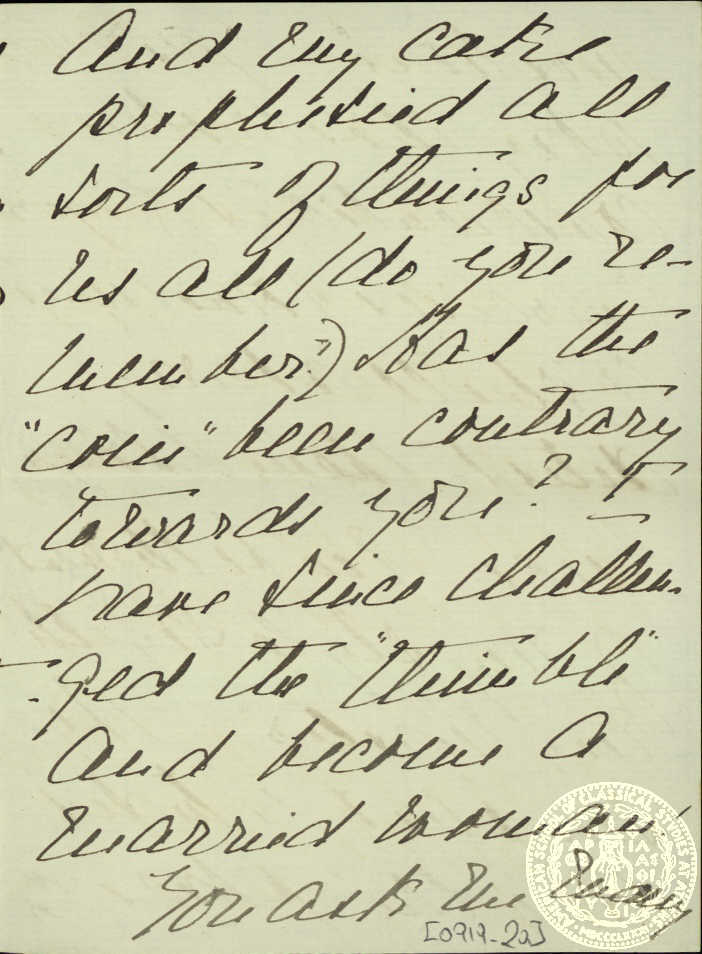 And my cake
prophesied all
sorts of things for
us all (do you re-
member?) Has the
"coin" been contrary
towards you? I
have since challen-
ged the "thimble"
and become a
married woman!
You ask me many
[0919-2a]
AMERICAN SCHOOL OF CLASSICAL STUDIES AT